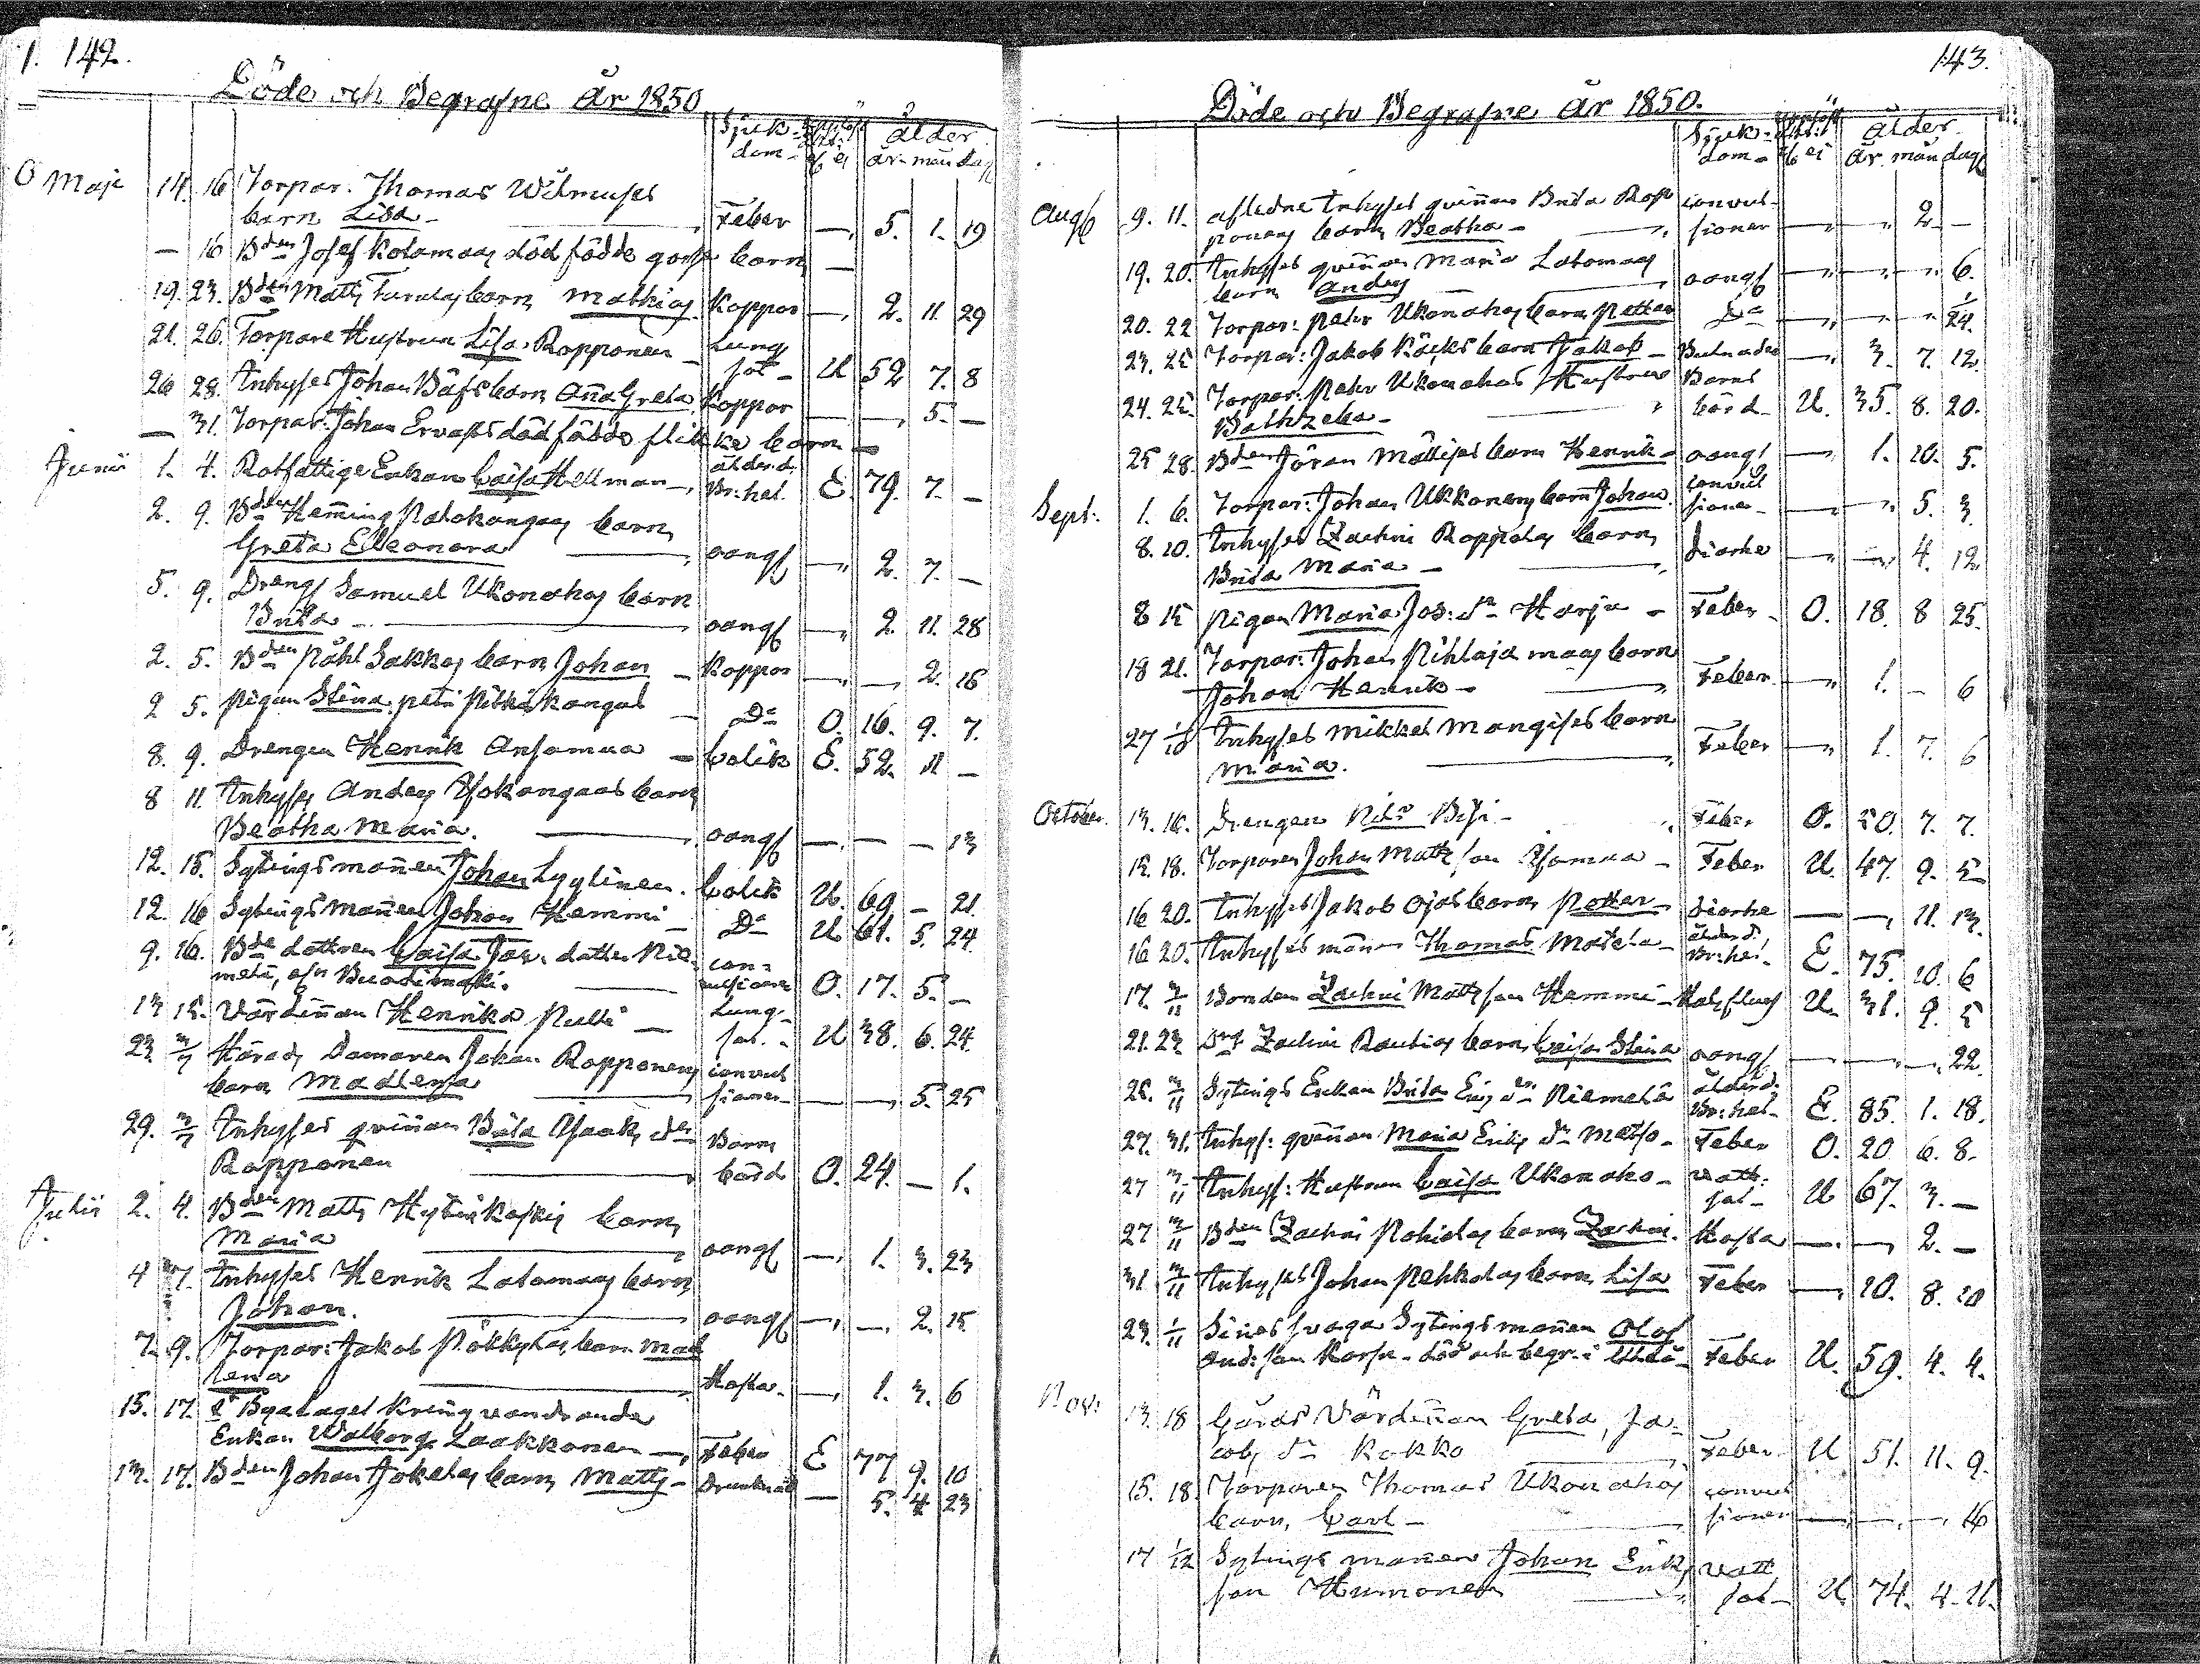 142.
Döde och Begrafne År 1850
Sjuk- dom- ålder
år mån dag
Maji 14. 16 Torpar. Thomas Wilmuses
barn Lisa - Feber - 5. 1. 19
- 16 Bden Josef Kotamaas död födde gosse barn -
19. 23. Bden Matts barn Mathias Koppor - 2. 11. 29
21. 26. Torpare Hustrun Lisa Ropponen - Lung
sot - U 52 7. 8
26 28. Inhyses Johan Bäfs barn Anna Greta Koppor - - 5. -
- 31. Torpar: Johan Ervasts död födde flicke barn -
Junii 1. 4. Rotfattige Enkan Caisa Hellman - ålderd.
Br:het. E 79. 7. -
2. 9. Bden Hemming Palokangas barn
Greta Elleonora - oangf - 2. 7. -
5. 9. Drengs Samuel Ukonahos barn
Brita - oangf - 2. 11. 28
2. 5. Bden Påhl Sakkos barn Johan - Koppor - - 2. 16
2 5. Pigan Stina Petri Pitkäkangas - Do O. 16. 9. 7.
8. 9. Drengen Henrik Ansamaa - Colik E. 52. 11 -
8 11. Inhyses Anders Isokangaas barn
Beatha Maria. - oangf - - - 13
12. 15. Sytingsmannen Johan Lyytinen. Colik U. 69 - 21.
12. 16 Sytingsmannen Johan Hemmi - Do U 61. 5. 24
9. 16. Bde dottren Caisa Jos. dotter Nie-
melä, con-
vulsioner O. 17. 5. -
13 15. Värdinnan Henrika Pulli - Lung-
sot. - U 38. 6. 24.
23 3/7 Härads Domaren Johan Ropponens convul
barn Madlena sioner - - 5. 25
29. 3/7 Inhyses qvinnan Brita Isaaks dr Barns
Ropponen börd O. 24. - 1.
Julii 2. 4. Bden Matts Hytinkoskis barn
Maria - oangf - 1. 3. 23
4 7. Inhyses Henrik Latomaas barn
Johan. - oangf - - 2. 15
7. 9. Torpar: Jakob Pökkylas barn Mad
lena - Hosta. - 1. 3. 6
15. 17. Byalaget kringvandrande
Enkan Walborg Laakkonen - Feber E 77 9. 10
13. 17. Bden Johan Jokelas barn Matts - Drunknad - 5. 4 23
143.
Döde och Begrafne År 1850.
Sjuk- dom- ålder.
år. mån dag
Aug 9. 11. aflidne Inhyses qvinnan Brita Rop convul-
ponens barn Beatha - sioner - - 2 -
19. 20. Inhyses qvinnan Maria Latomaas
barn Anders oangf - - - 6.
20. 22 Torpar: Pehr Ukonahos barn Petter Do - - - 1/24.
23. 25 Torpar: Jakob Käcks barn Jakob - - 3. 7. 12.
24. 25. Torpar: Pehr Ukonahos Hustru Barns
Bathzeba - börd - U. 35. 8. 20.
25 28. Bden Jöran Mällises barn Henrik - oangf - 1. 10. 5.
Sept: 1. 6. Torpar: Johan Ukkonens barn Johan. convul
sioner - - - 5. 3.
8. 10. Inhyses Zachri Roppolas barn
Brita Maria - diarhe - - 4. 12
8 15 Pigan Maria Jos: dr Harju - Feber - O. 18. 8 25.
18 21. Torpar: Johan Pihlajamaas barn
Johan Henrik - Feber - 1. - 6
27 1/10 Inhyses Mikkel Mangises barn
Maria. - Feber - 1. 7. 6
October. 13. 16. Drengen Nils - Feber O. 20. 7. 7.
15. 18. Torparen Johan Matts son Isomaa - Feber U. 47. 9. 5
16 20. Inhyses Jakob Ojas barn Petter - diarhe - - 11. 13.
16 20. Inhyses mannen Thomas Matela - ålderd.
Br:het. E. 75. 10. 6
17. 3/11 Bonden Zachri Matts son Hemmi - Halsfluss U. 31. 9. 5
21. 23 Zachri Rautios barn Caisa Stina oangf - - - 22.
26. 3/11 Sytings Enkan Brita Erics dr Niemelä ålderd.
Br:het - E. 85. 1. 18.
27. 31. Inhys: qvinnan Maria Erics dr Matso - Feber O. 20 6. 8.
27 3/11 Inhys: Hustrun Caisa Ukonaho - vatt:
sot - U 67. 3. -
27 3/11 Bden Zachri Pohiolas barn Zachri. Hosta - - 2. -
31 3/11 Inhyses Johan Pehkolas barn Lisa Feber - 10. 8. 10
23. 1/11 Sinessvaga Sytingsmannen Olof
And: son Korpi - död och begr. i Uleå - Feber U. 59. 4. 4.
Nov: 13. 18 Gårds Värdinnan Greta, Ja-
cobs dr Kokko Feber - U 51. 11. 9.
15. 18. Torparen Thomas Ukonahos convul
barn, Carl - sioner - - - 16
17 1/12 Sytings mannen Johan Eriks vatt
son Humonen sot - U. 74. 4. 21.